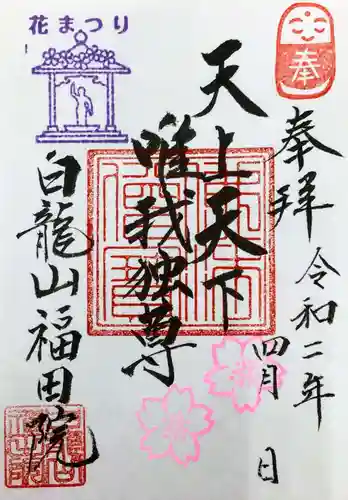 奉
奉拝
令和二年
四月 日
天上天下
唯我独尊
花まつり
白龍山福田院